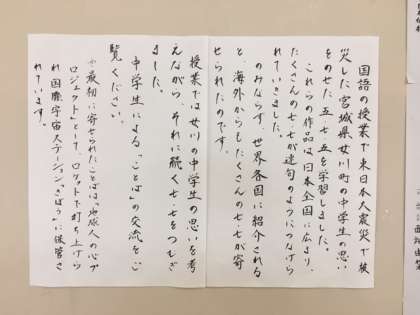 国語の授業で東日本大震災で被
災した宮城県女川町の中学生の思い
をのせた五七五を学習しました。
これらの作品は日本全国に広より、
たくさんの七七が連句のようにつなげら
れていきました。
のみならず、世界各国に紹介される
と、海外からもたくさんの七七が寄
せられたのです。
授業では女川の中学生の思いを考
えながら、それに続く七・七をつむぎ
ました。
中学生による「ことば」の交流をご
覧ください。
※最初に寄せられたことばは「地球人の心プ
ロジェクト」として、ロケットで打ち上げら
れ国際宇宙ステーション"きぼう"に保管さ
れています。